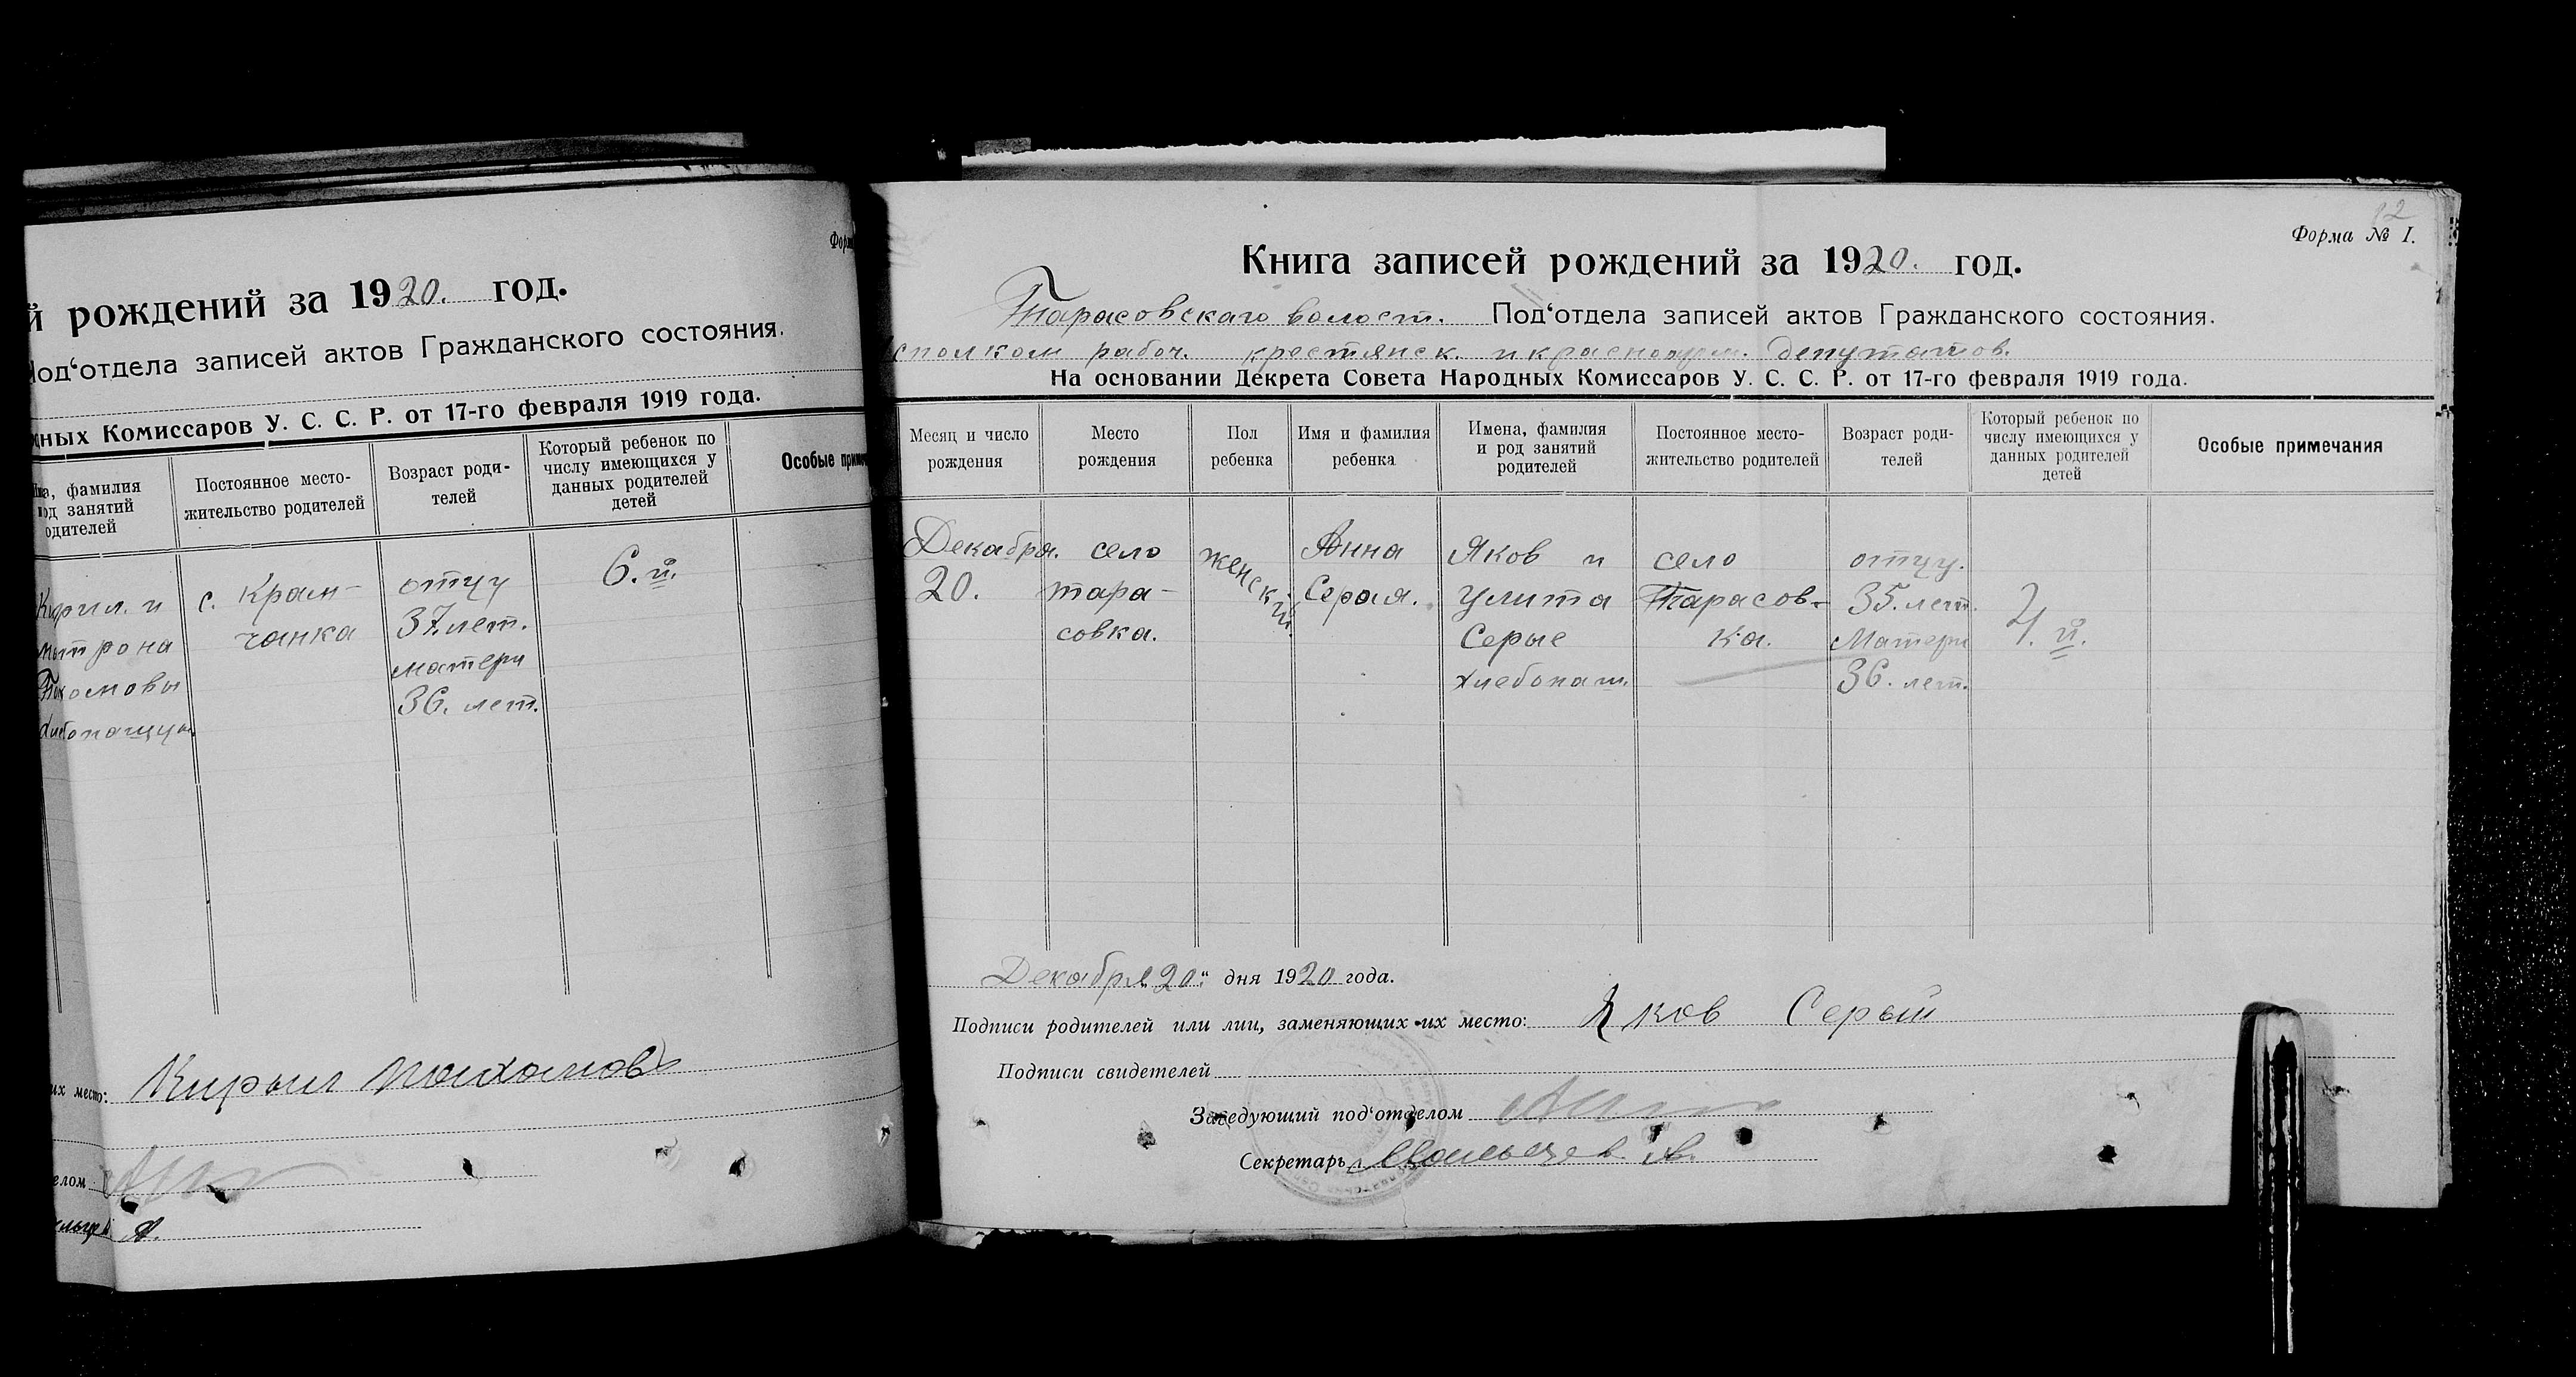 Форма
й рождений за 1920. год.
Под‘отдела записей актов Гражданского состояния.
ных Комиссаров У. С. С. Р. от 17-го февраля 1919 года.
на, фамилия
од занятий
одителей
Постоянное место-
жительство родителей
Возраст роди-
телей
Который ребенок по
числу имеющихся у
данных родителей
детей
Особые примеча
Кирил. и
с. Крам-
чанка
отцу
37. лет.
матери
36. лет.
6. й.
их место: Кирыл
елом
А.
82
Форма № I.
Книга записей рождений за 1920. год.
Тарасовскаго волост. Под‘отдела записей актов Гражданского состояния.
исполком рабоч. крестянск. и красноарм. депутатов.
На основании Декрета Совета Народных Комиссаров У. С. С. Р. от 17-го февраля 1919 года.
Месяц и число
рождения
Место
рождения
Пол
ребенка
Имя и фамилия
ребенка
Имена, фамилия
и род занятий
родителей
Постоянное место-
жительство родителей
Возраст роди-
телей
Который ребенок по
числу имеющихся у
данных родителей
детей
Особые примечания
Декабря.
20.
село
тара-
совка.
женский.
Анна
Серая.
Яков и
Улита
Серые
хлебопаш.
село
Тарасов-
ка.
отцу.
35. лет.
Матери
36. лет.
4. й.
Декабря 20 „ дня 1920 года.
Подписи родителей или лиц, заменяющих их место: Яков Серый
Подписи свидетелей
Заведующий под‘отделом
Секретарь